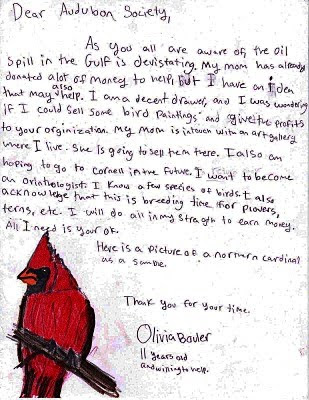 Dear Audubon Society,
As you all are aware of, the oil
spill in the Gulf is devistating. My mom has already
donated alot of money to help, but I have an iden
that may also help. I am a decent drawer, and I was wondering
if I could sell some bird paintings and give the profits
to your orginization. My mom is in touch with an art gallery
where I live. She is going to sell them there. I also am
hoping to go to cornell in the future. I want to become
an orinthologist. I know a few species of birds. I also
acknowledge that this is breeding time for Plovers,
terns, etc. I will do all in my stragth to earn money.
All I need is your ok.
Here is a picture of a northern cardinal
as a samble.
Thank you for your time.
Olivia Bouler
11 years old
and willing to help.